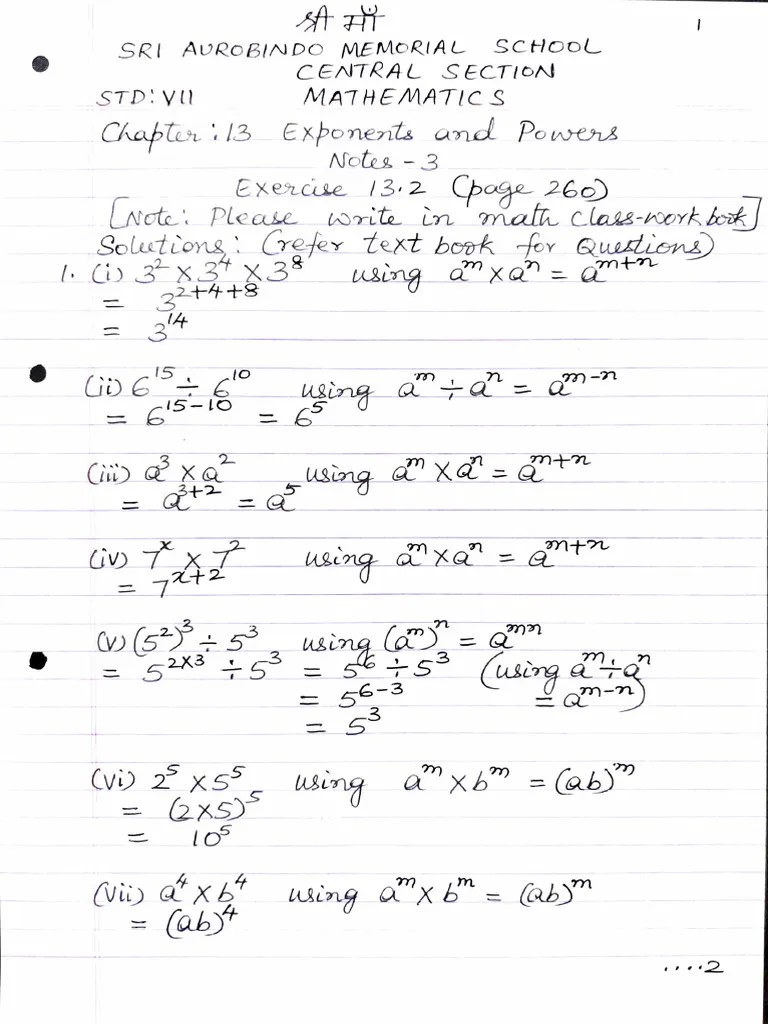 श्री माँ
1
SRI AUROBINDO MEMORIAL SCHOOL
CENTRAL SECTION
STD: VII MATHEMATICS
Chapter: 13 Exponents and Powers
Notes - 3
Exercise 13.2 (page 260)
[Note: Please write in math class-work book]
Solutions: (refer text book for Questions)
1. (i) 3² × 3⁴ × 3⁸ using aᵐ × aⁿ = aᵐ⁺ⁿ
= 3²⁺⁴⁺⁸
= 3¹⁴
(ii) 6¹⁵ ÷ 6¹⁰ using aᵐ ÷ aⁿ = aᵐ⁻ⁿ
= 6¹⁵⁻¹⁰ = 6⁵
(iii) a³ × a² using aᵐ × aⁿ = aᵐ⁺ⁿ
= a³⁺² = a⁵
(iv) 7ˣ × 7² using aᵐ × aⁿ = aᵐ⁺ⁿ
= 7ˣ⁺²
(v) (5²)³ ÷ 5³ using (aᵐ)ⁿ = aᵐⁿ
= 5²ˣ³ ÷ 5³ = 5⁶ ÷ 5³ (using aᵐ ÷ aⁿ
= 5⁶⁻³ = aᵐ⁻ⁿ)
= 5³
(vi) 2⁵ × 5⁵ using aᵐ × bᵐ = (ab)ᵐ
= (2×5)⁵
= 10⁵
(vii) a⁴ × b⁴ using aᵐ × bᵐ = (ab)ᵐ
= (ab)⁴
....2